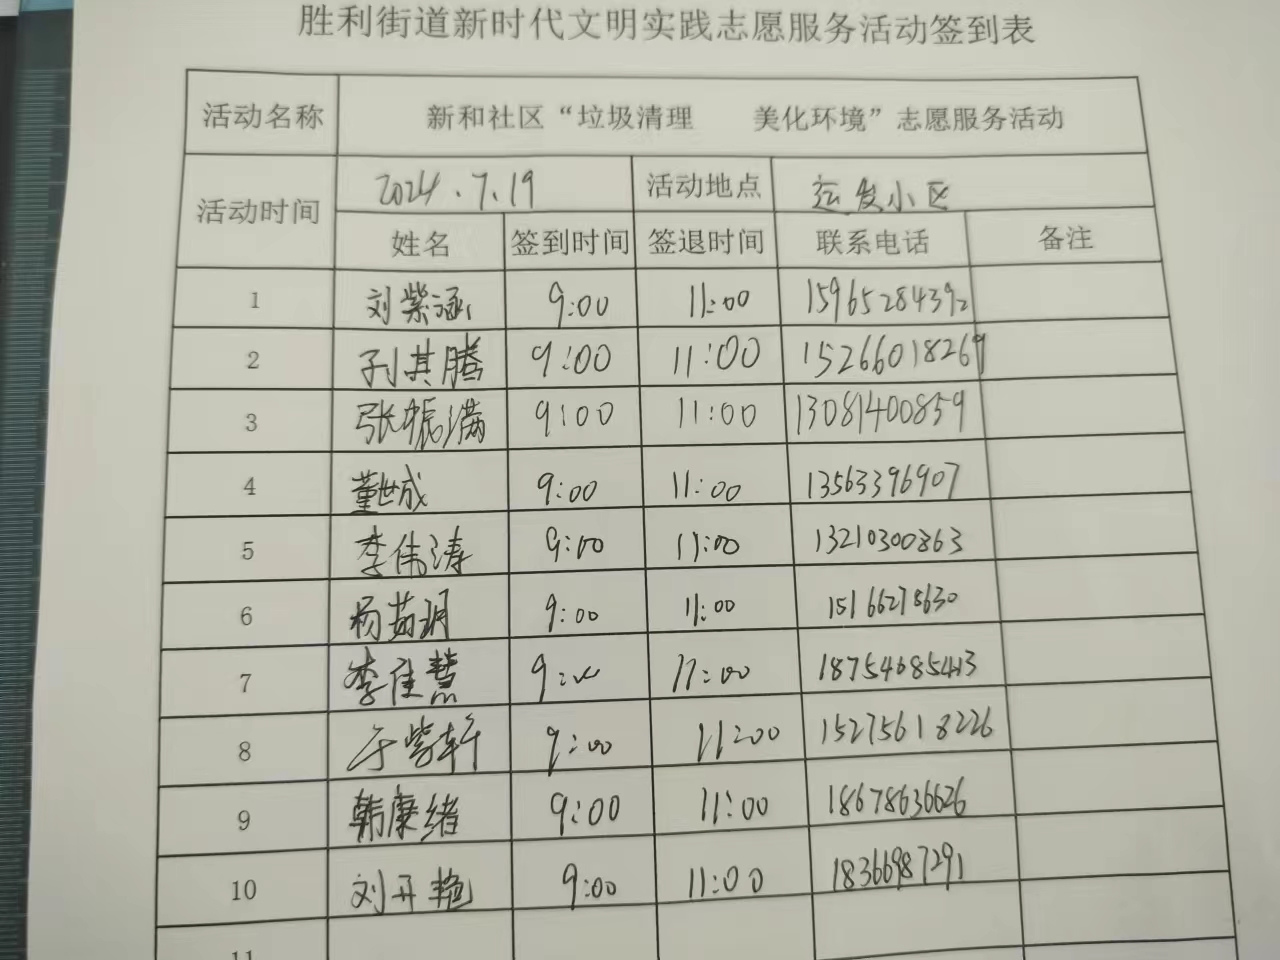 胜利街道新时代文明实践志愿服务活动签到表
活动名称 新和社区“垃圾清理 美化环境”志愿服务活动
活动时间 2024.7.19 活动地点 运发小区
姓名 签到时间 签退时间 联系电话 备注
1 刘紫涵 9:00 11:00 15965284392
2 孙其腾 9:00 11:00 15266018269
3 张振满 9:00 11:00 13081400859
4 董世成 9:00 11:00 13563396907
5 李伟涛 9:00 11:00 13210300863
6 杨茹玥 9:00 11:00 15166278630
7 李佳慧 9:00 11:00 18754685413
8 于紫轩 9:00 11:00 15275618226
9 韩康绪 9:00 11:00 18678636626
10 刘丹艳 9:00 11:00 18366987291
11